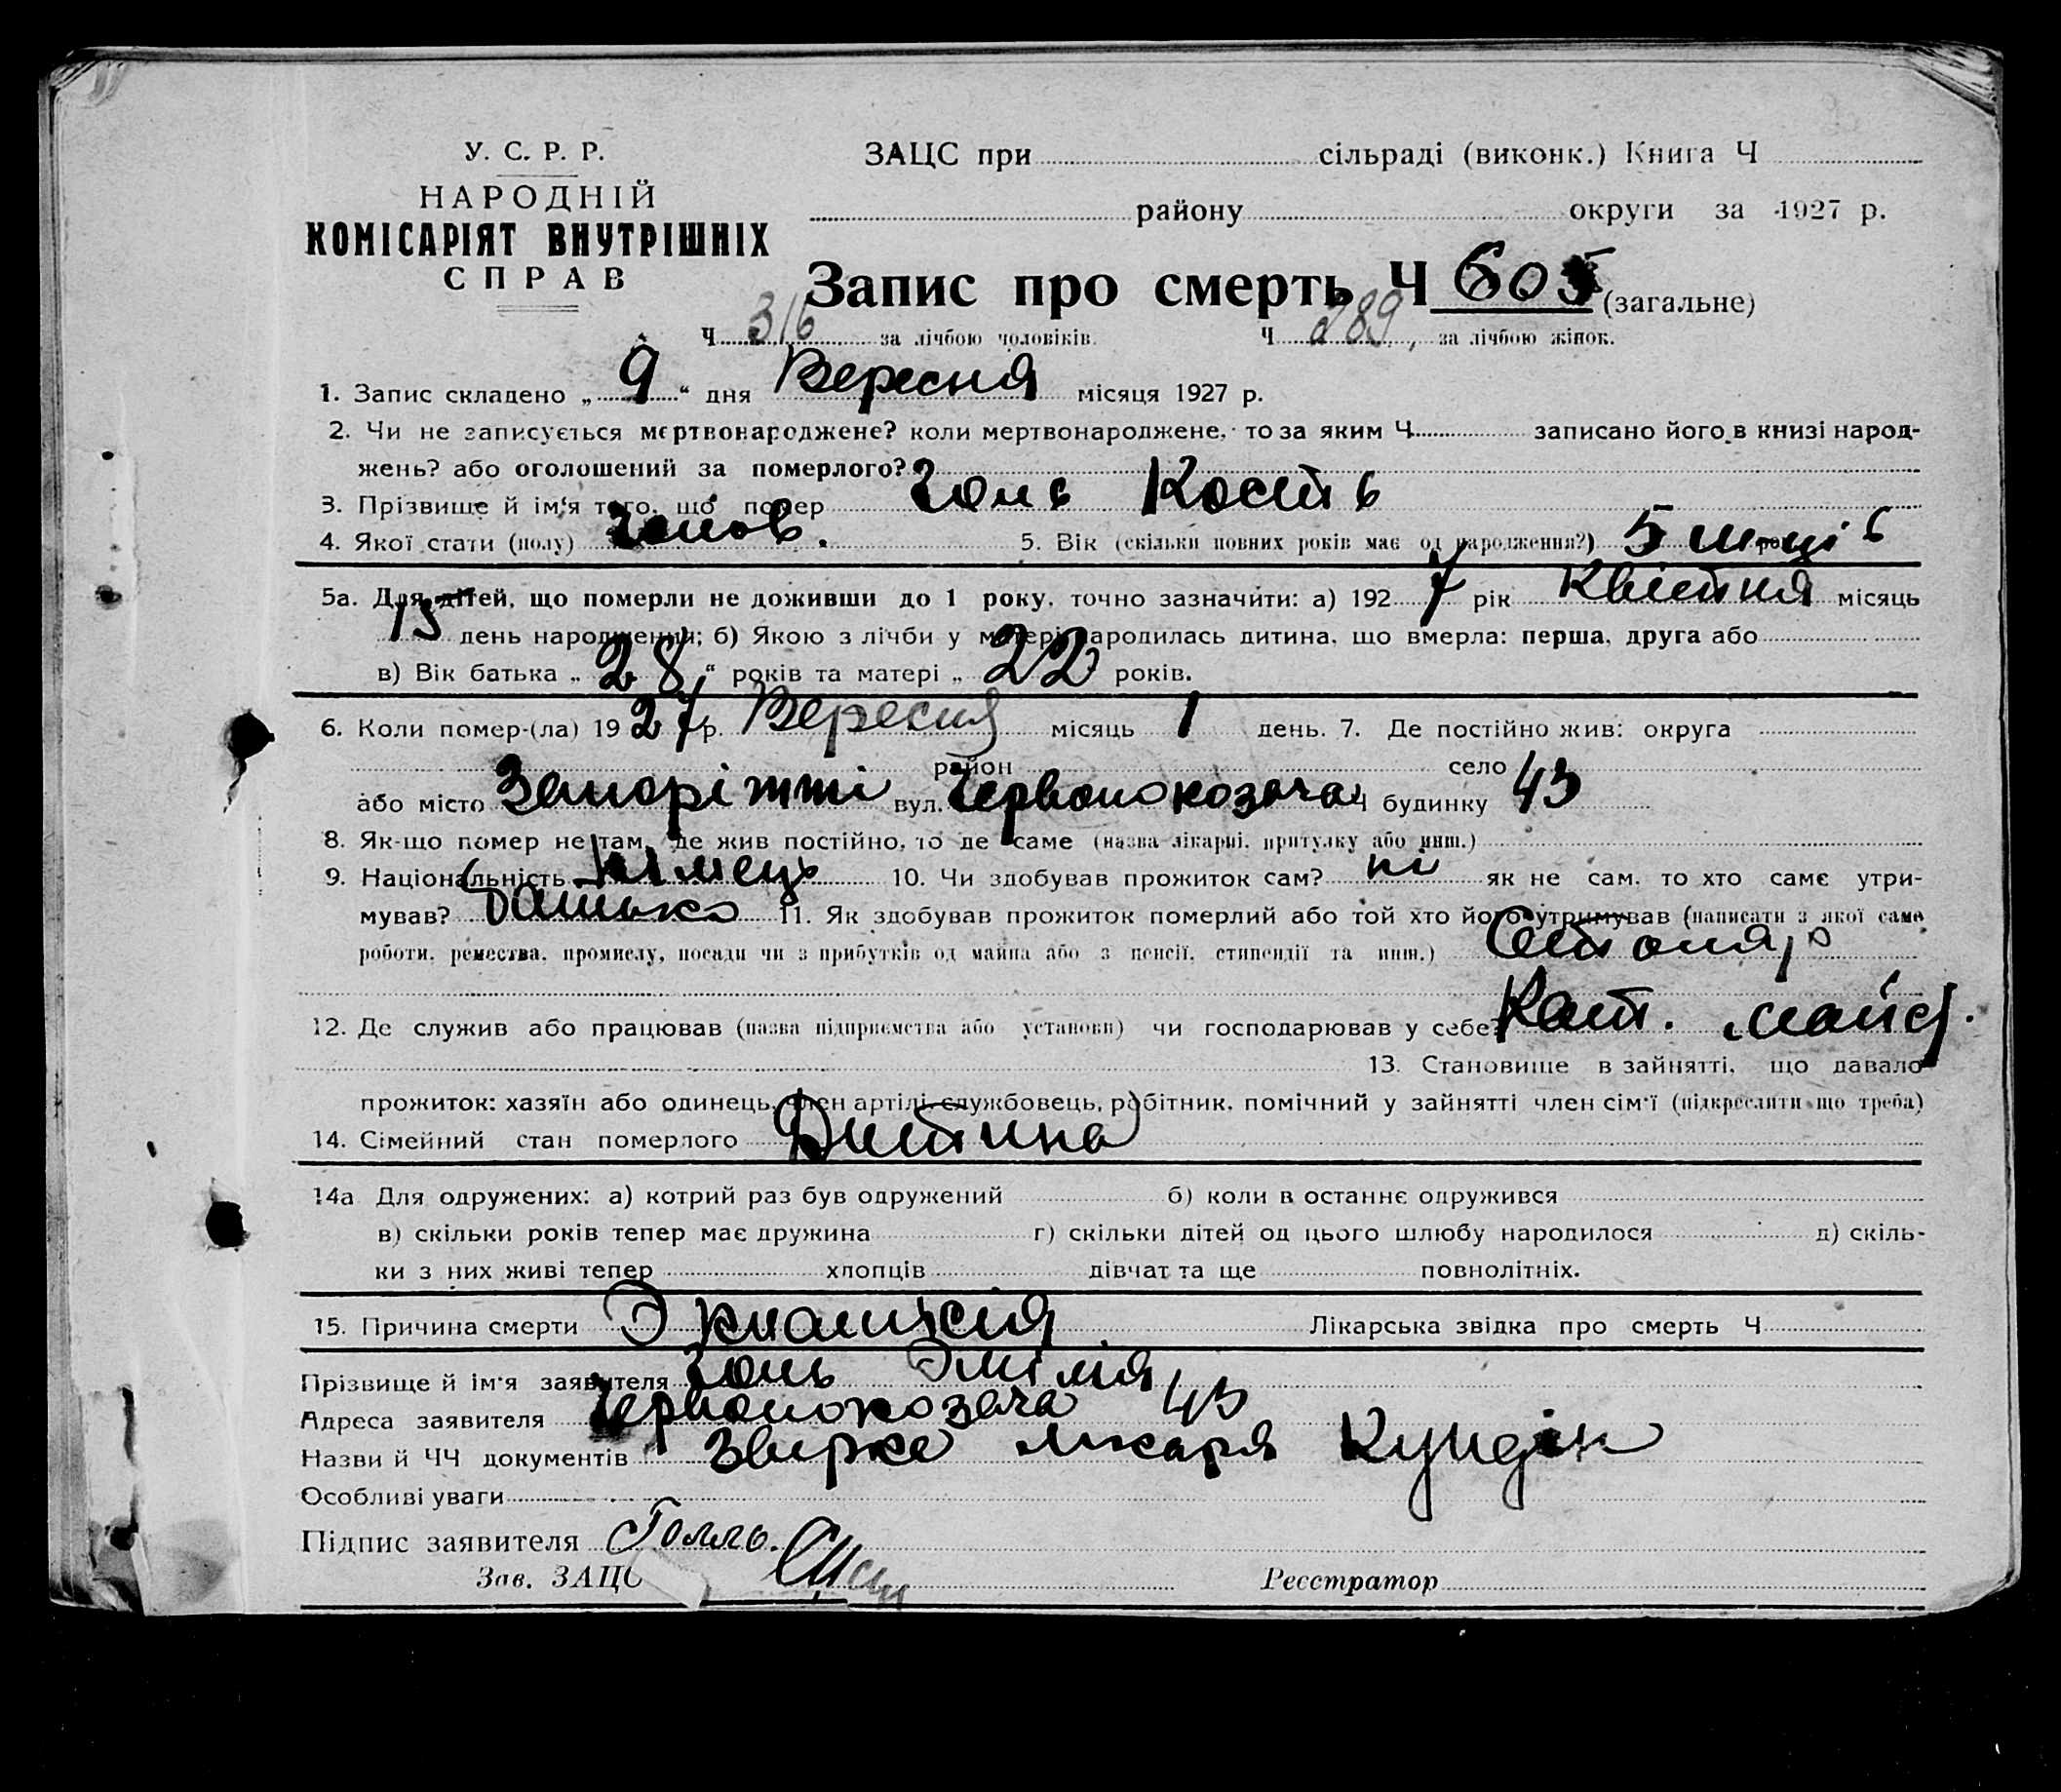 У. С. Р. Р.
НАРОДНІЙ
КОМІСАРІЯТ ВНУТРІШНІХ
СПРАВ
ЗАЦС при сільраді (виконк.) Книга Ч
району округи за 1927 р.
Запис про смерть Ч 605 (загальне)
Ч 316 за лічбою чоловіків. Ч 289, за лічбою жінок.
1. Запис складено „ 9 “ дня Вересня місяця 1927 р.
2. Чи не записується мертвонароджене? коли мертвонароджене, то за яким Ч записано його в книзі народ-
жень? або оголошений за померлого?
3. Прізвище й ім'я того, що помер Голь Кость
4. Якої стати (полу) чолов. 5. Вік (скільки повних років має од народження?) 5 м-ців
5а. Для дітей, що померли не доживши до 1 року, точно зазначити: а) 192 7 рік Квітня місяць
15 день народження; б) Якою з лічби у матері народилась дитина, що вмерла: перша, друга або
в) Вік батька „ 28 “ років та матері „ 22 років.
6. Коли помер-(ла) 19 27 р. Вересня місяць 1 день. 7. Де постійно жив: округа
район село
або місто Запоріжжі вул. Червонокозача Ч будинку 43
8. Як-що помер не там, де жив постійно, то де саме (назва лікарні, притулку або инш.)
9. Національність Німець 10. Чи здобував прожиток сам? ні як не сам, то хто саме утри-
мував? батько 11. Як здобував прожиток померлий або той хто його утримував (написати з якої саме
роботи, ремества, промислу, посади чи з прибутків од майна або з пенсії, стипендії та инш.) Столяр
12. Де служив або працював (назва підприємства або установи) чи господарював у себе? майс.
13. Становище в зайнятті, що давало
прожиток: хазяїн або одинець, член артілі, службовець, робітник, помічний у зайнятті член сім'ї (підкреслити що треба)
14. Сімейний стан померлого Дитина
14а Для одружених: а) котрий раз був одружений б) коли в останнє одружився
в) скільки років тепер має дружина г) скільки дітей од цього шлюбу народилося д) скіль-
ки з них живі тепер хлопців дівчат та ще повнолітніх.
15. Причина смерти Эклампсия Лікарська звідка про смерть Ч
Прізвище й ім'я заявителя Голь Эмілія
Адреса заявителя Червонокозача 43
Назви й ЧЧ документів лікаря
Особливі уваги
Підпис заявителя Голль.
Зав. ЗАЦС Реєстратор